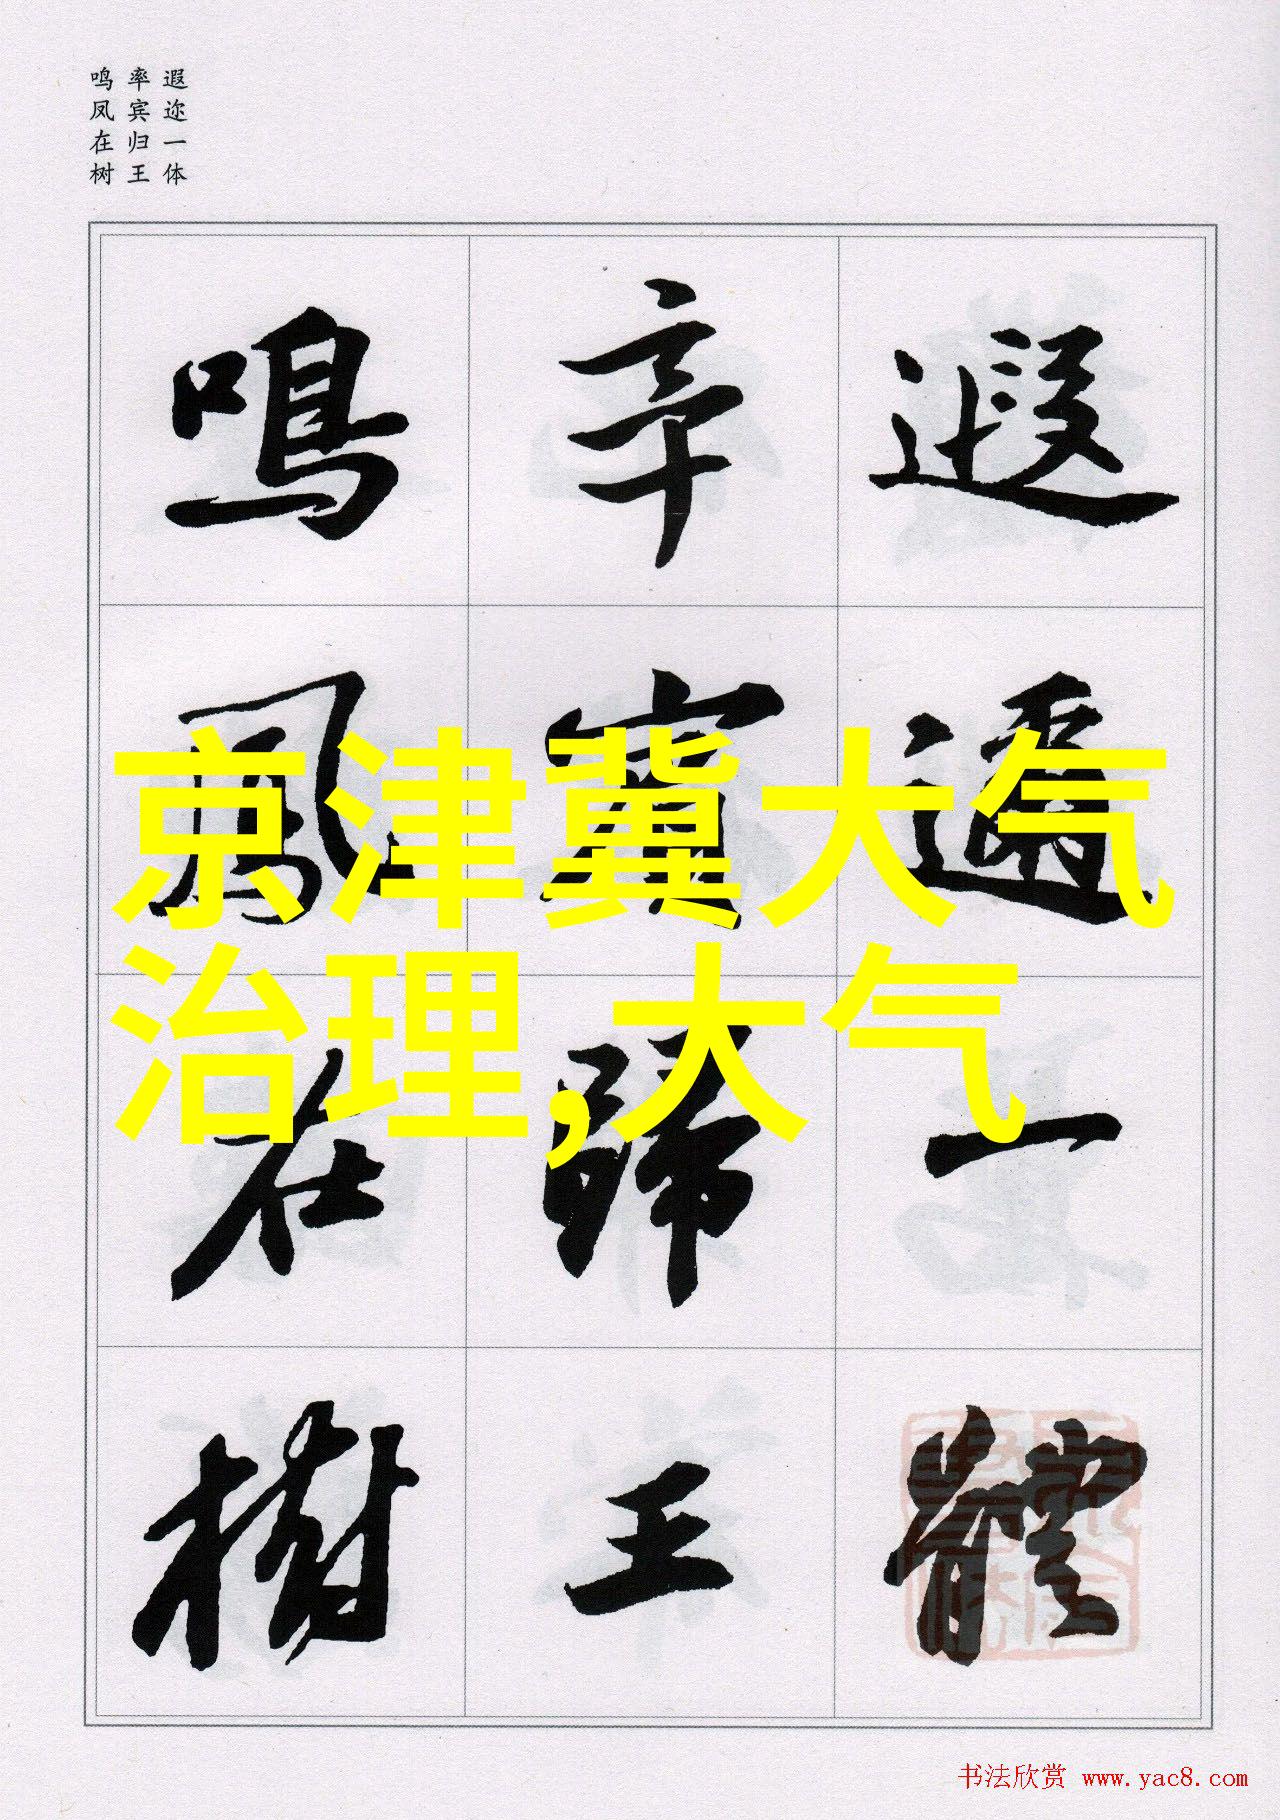 遐迩一体
率宾归王
鸣凤在树
遐邇一體
率賓歸王
鳴鳳在樹
京津冀大气
治理,大气
书法欣赏 www.yac8.com